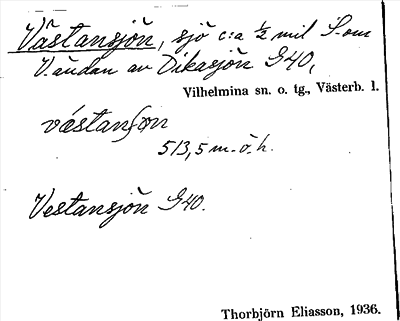 Västansjön, sjö c:a ½ mil S. om
V. ändan av Dikasjön G40,
Vilhelmina sn. o. tg., Västerb. l.
västanʃön
513,5 m. ö. h.
Vestansjön G40.
Thorbjörn Eliasson, 1936.